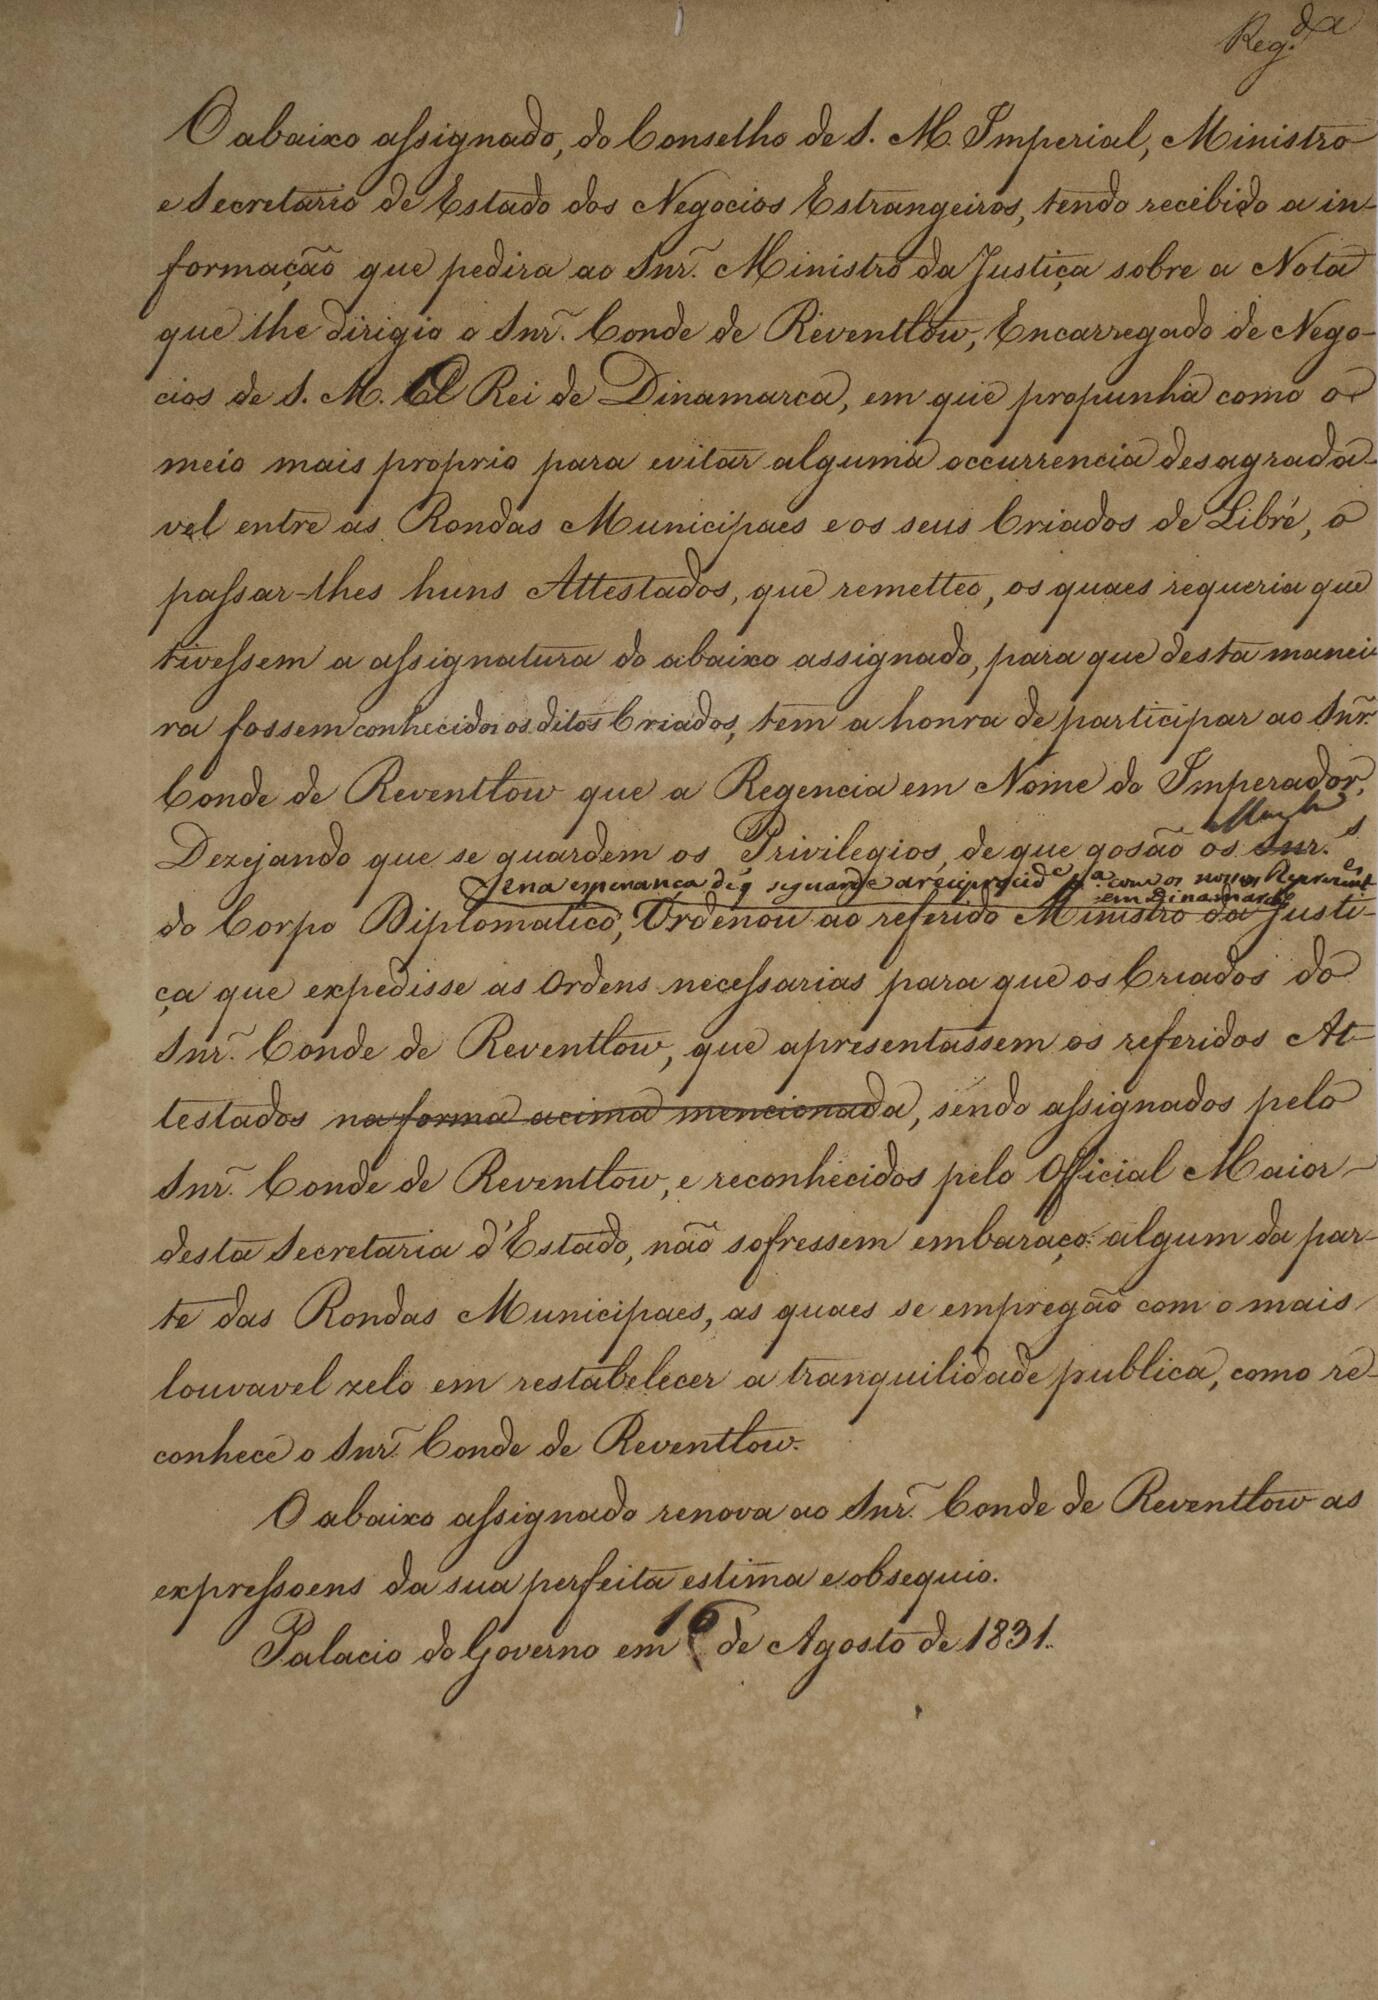 Reg.da
O abaixo assignado, do Conselho de S. M. Imperial, Ministro
e Secretario de Estado dos Negocios Estrangeiros, tendo recebido a in-
formação que pedira ao Snr. Ministro da Justiça sobre a Nota
que lhe dirigio o Snr. Conde de Reventlow, Encarregado de Nego-
cios de S. M. El Rei de Dinamarca, em que propunha como o
meio mais proprio para evitar alguma occurrencia desagrada-
vel entre as Rondas Municipaes e os seus Criados de Libré, o
passar-lhes huns Attestados, que remetteo, os quaes requeria que
tivessem a assignatura do abaixo assignado, para que desta manei
ra fossem conhecidos os ditos Criados, tem a honra de participar ao Snr.
Conde de Reventlow que a Regencia em Nome do Imperador,
Dezejando que se guardem os Privilegios, de que gosão os Snr.s
e na esperança de q se guarde a reciprocide pa. com os nossos Represent.es
em Dinamarca
do Corpo Diplomatico, Ordenou ao referido Ministro da Justi-
ça que expedisse as Ordens necessarias para que os Criados do
Snr. Conde de Reventlow, que apresentassem os referidos At-
testados na forma acima mencionada, sendo assignados pelo
Snr. Conde de Reventlow, e reconhecidos pelo Official Maior
desta Secretaria d'Estado, não sofressem embaraço algum da par-
te das Rondas Municipaes, as quaes se empregão com o mais
louvavel zelo em restabelecer a tranquilidade publica, como re-
conhece o Snr. Conde de Reventlow.
O abaixo assignado renova ao Snr. Conde de Reventlow as
expressoens da sua perfeita estima e obsequio.
Palacio do Governo em 16 de Agosto de 1831.